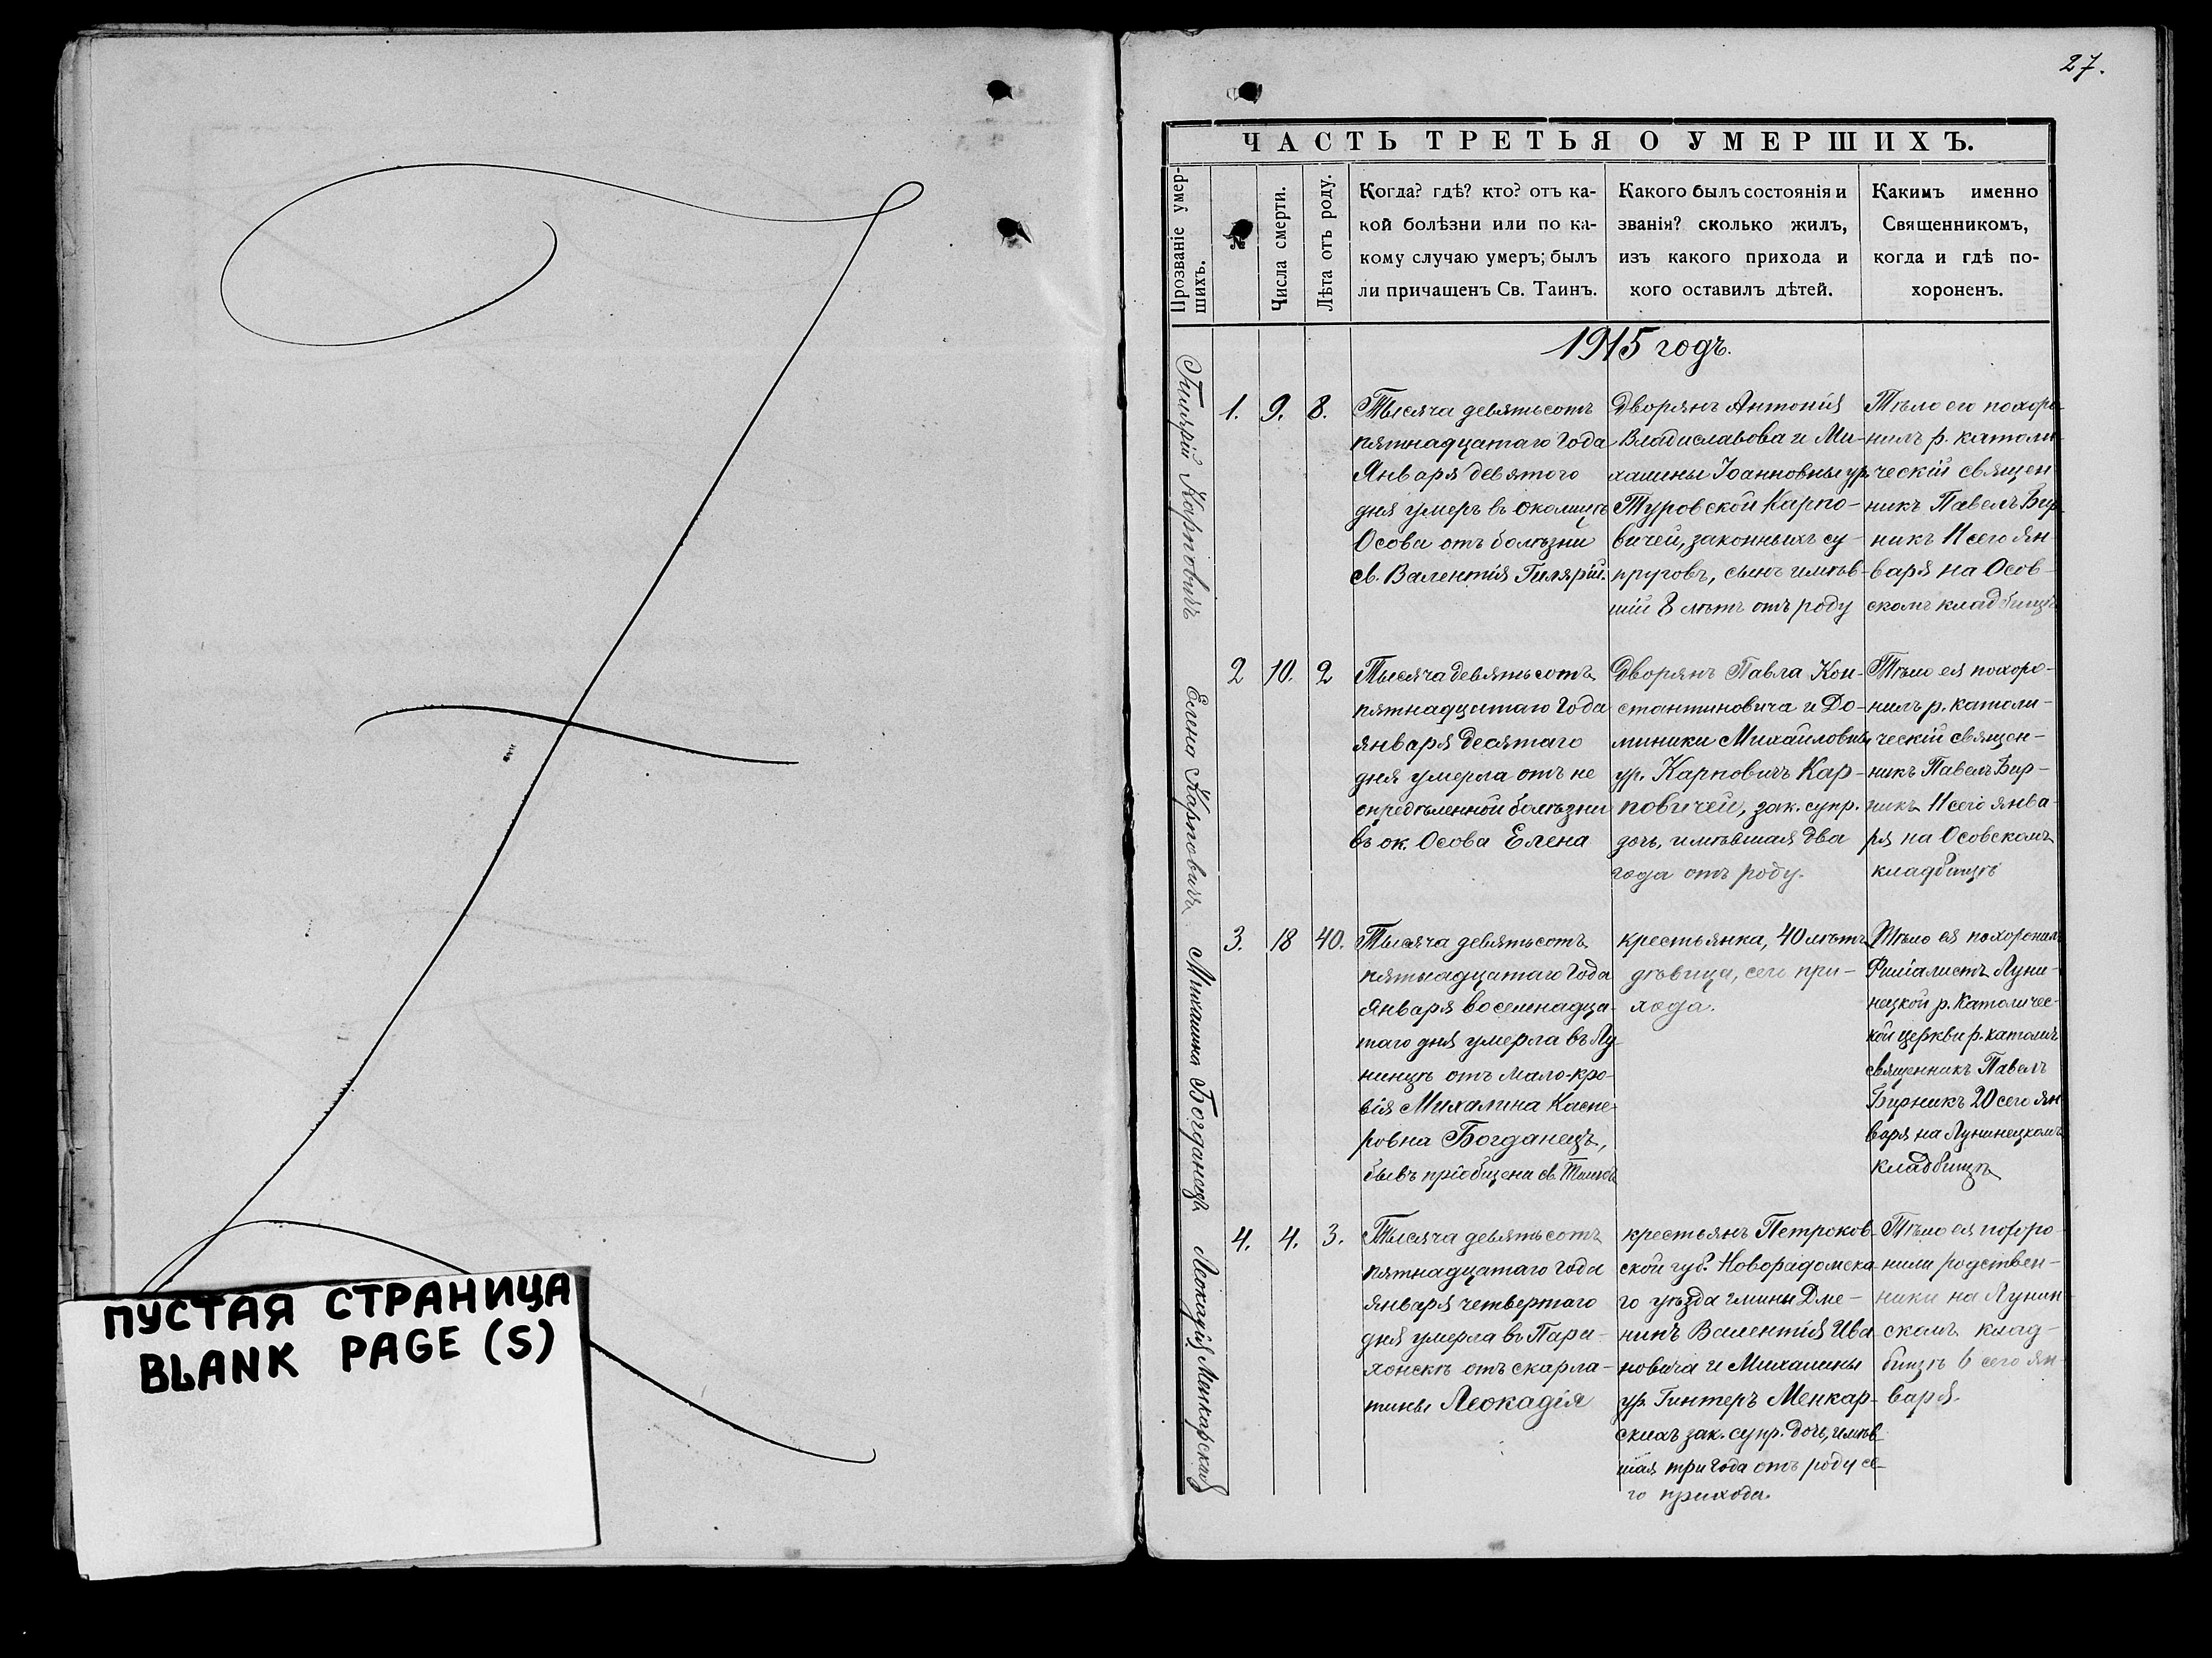 ПУСТАЯ СТРАНИЦА
BLANK PAGE (S)
27.
ЧАСТЬ ТРЕТЬЯ О УМЕРШИХЪ.
Прозваніе умер-
шихъ.
№
Числа смерти.
Лѣта отъ роду.
Когда? гдѣ? кто? отъ ка-
кой болѣзни или по ка-
кому случаю умеръ; былъ
ли причащенъ Св. Таинъ.
Какого былъ состоянія и
званія? сколько жилъ,
изъ какого прихода и
кого оставилъ дѣтей.
Какимъ именно
Священникомъ,
когда и гдѣ по-
хороненъ.
1915 годъ.
Гилярій Карповичъ
1.
9.
8.
Тысяча девятьсотъ
пятнадцатаго года
Января девятого
дня умеръ въ околицѣ
Осова отъ болѣзни
св. Валентія Гилярій.
Дворянъ Антонія
Владиславова и Ми-
халины Іоанновны ур.
Туровской Карпо-
вичей, законныхъ су-
пруговъ, сынъ имѣв-
шій 8 лѣтъ отъ роду
Тѣло его похоро-
нилъ р. католи-
ческій священ
никъ Павелъ Бир-
никъ 11 сего Ян
варя на Осов-
скомъ кладбищѣ
Елена Карповичъ
2
10.
2
Тысяча девятьсотъ
пятнадцатаго года
января десятаго
дня умерла отъ не
опредѣленной болѣзни
въ ок. Осова Елена
Дворянъ Павла Кон-
стантиновича и До-
миники Михайловны
ур. Карповичъ Кар-
повичей, зак. супр.
дочь, имѣвшая два
года отъ роду.
Тѣло ея похоро-
нилъ р. католи-
ческій священ-
никъ Павелъ Бир-
никъ 11 сего янва-
ря на Осовскомъ
кладбищѣ
Михалина Богданецъ
3.
18
40.
Тысяча девятьсотъ
пятнадцатаго года
Января восемнадца-
таго дня умерла въ Лу
нинцѣ отъ мало-кро-
вія Михалина Каспе-
ровна Богданецъ,
бывъ пріобщена св. Таинъ
крестьянка, 40 лѣтъ
дѣвица, сего при-
хода.
Тѣло ея похоронилъ
Филіалистъ Луни-
нецкой р. Католичес-
кой церкви р. католич.
священникъ Павелъ
Бирникъ 20 сего Ян
варя на Лунинецкомъ
кладбищѣ
Леокадія Менкарская
4.
4.
3.
Тысяча девятьсотъ
пятнадцатаго года
января четвертаго
дня умерла въ Пари-
хонскѣ отъ скарла-
тины Леокадія
крестьянъ Петроков-
ской губ. Новорадомска-
го уѣзда гмины Дме-
нинъ Валентія Ива
новича и Михалины
ур. Гинтеръ Менкар-
скихъ зак. супр. дочь, имѣв-
шая три года отъ роду се-
го прихода.
Тѣло ея похоро
нили родствен-
ники на Лунин
скомъ клад-
бищѣ 6 сего Ян-
варя.